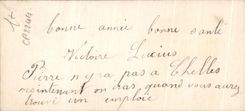 1t
CP2244
bonne année bonne santé
Victoire Lucius
Pierre n'y a pas a Chelles
maintenant on ira, quand vous aurez
trouvé un emploie